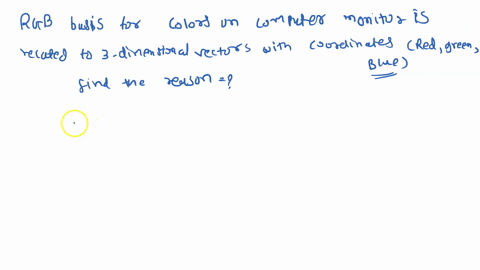 RGB basis for colors on computer monitor is
related to 3-dimensional vectors with coordinates (Red, green,
Blue)
find the reason =?